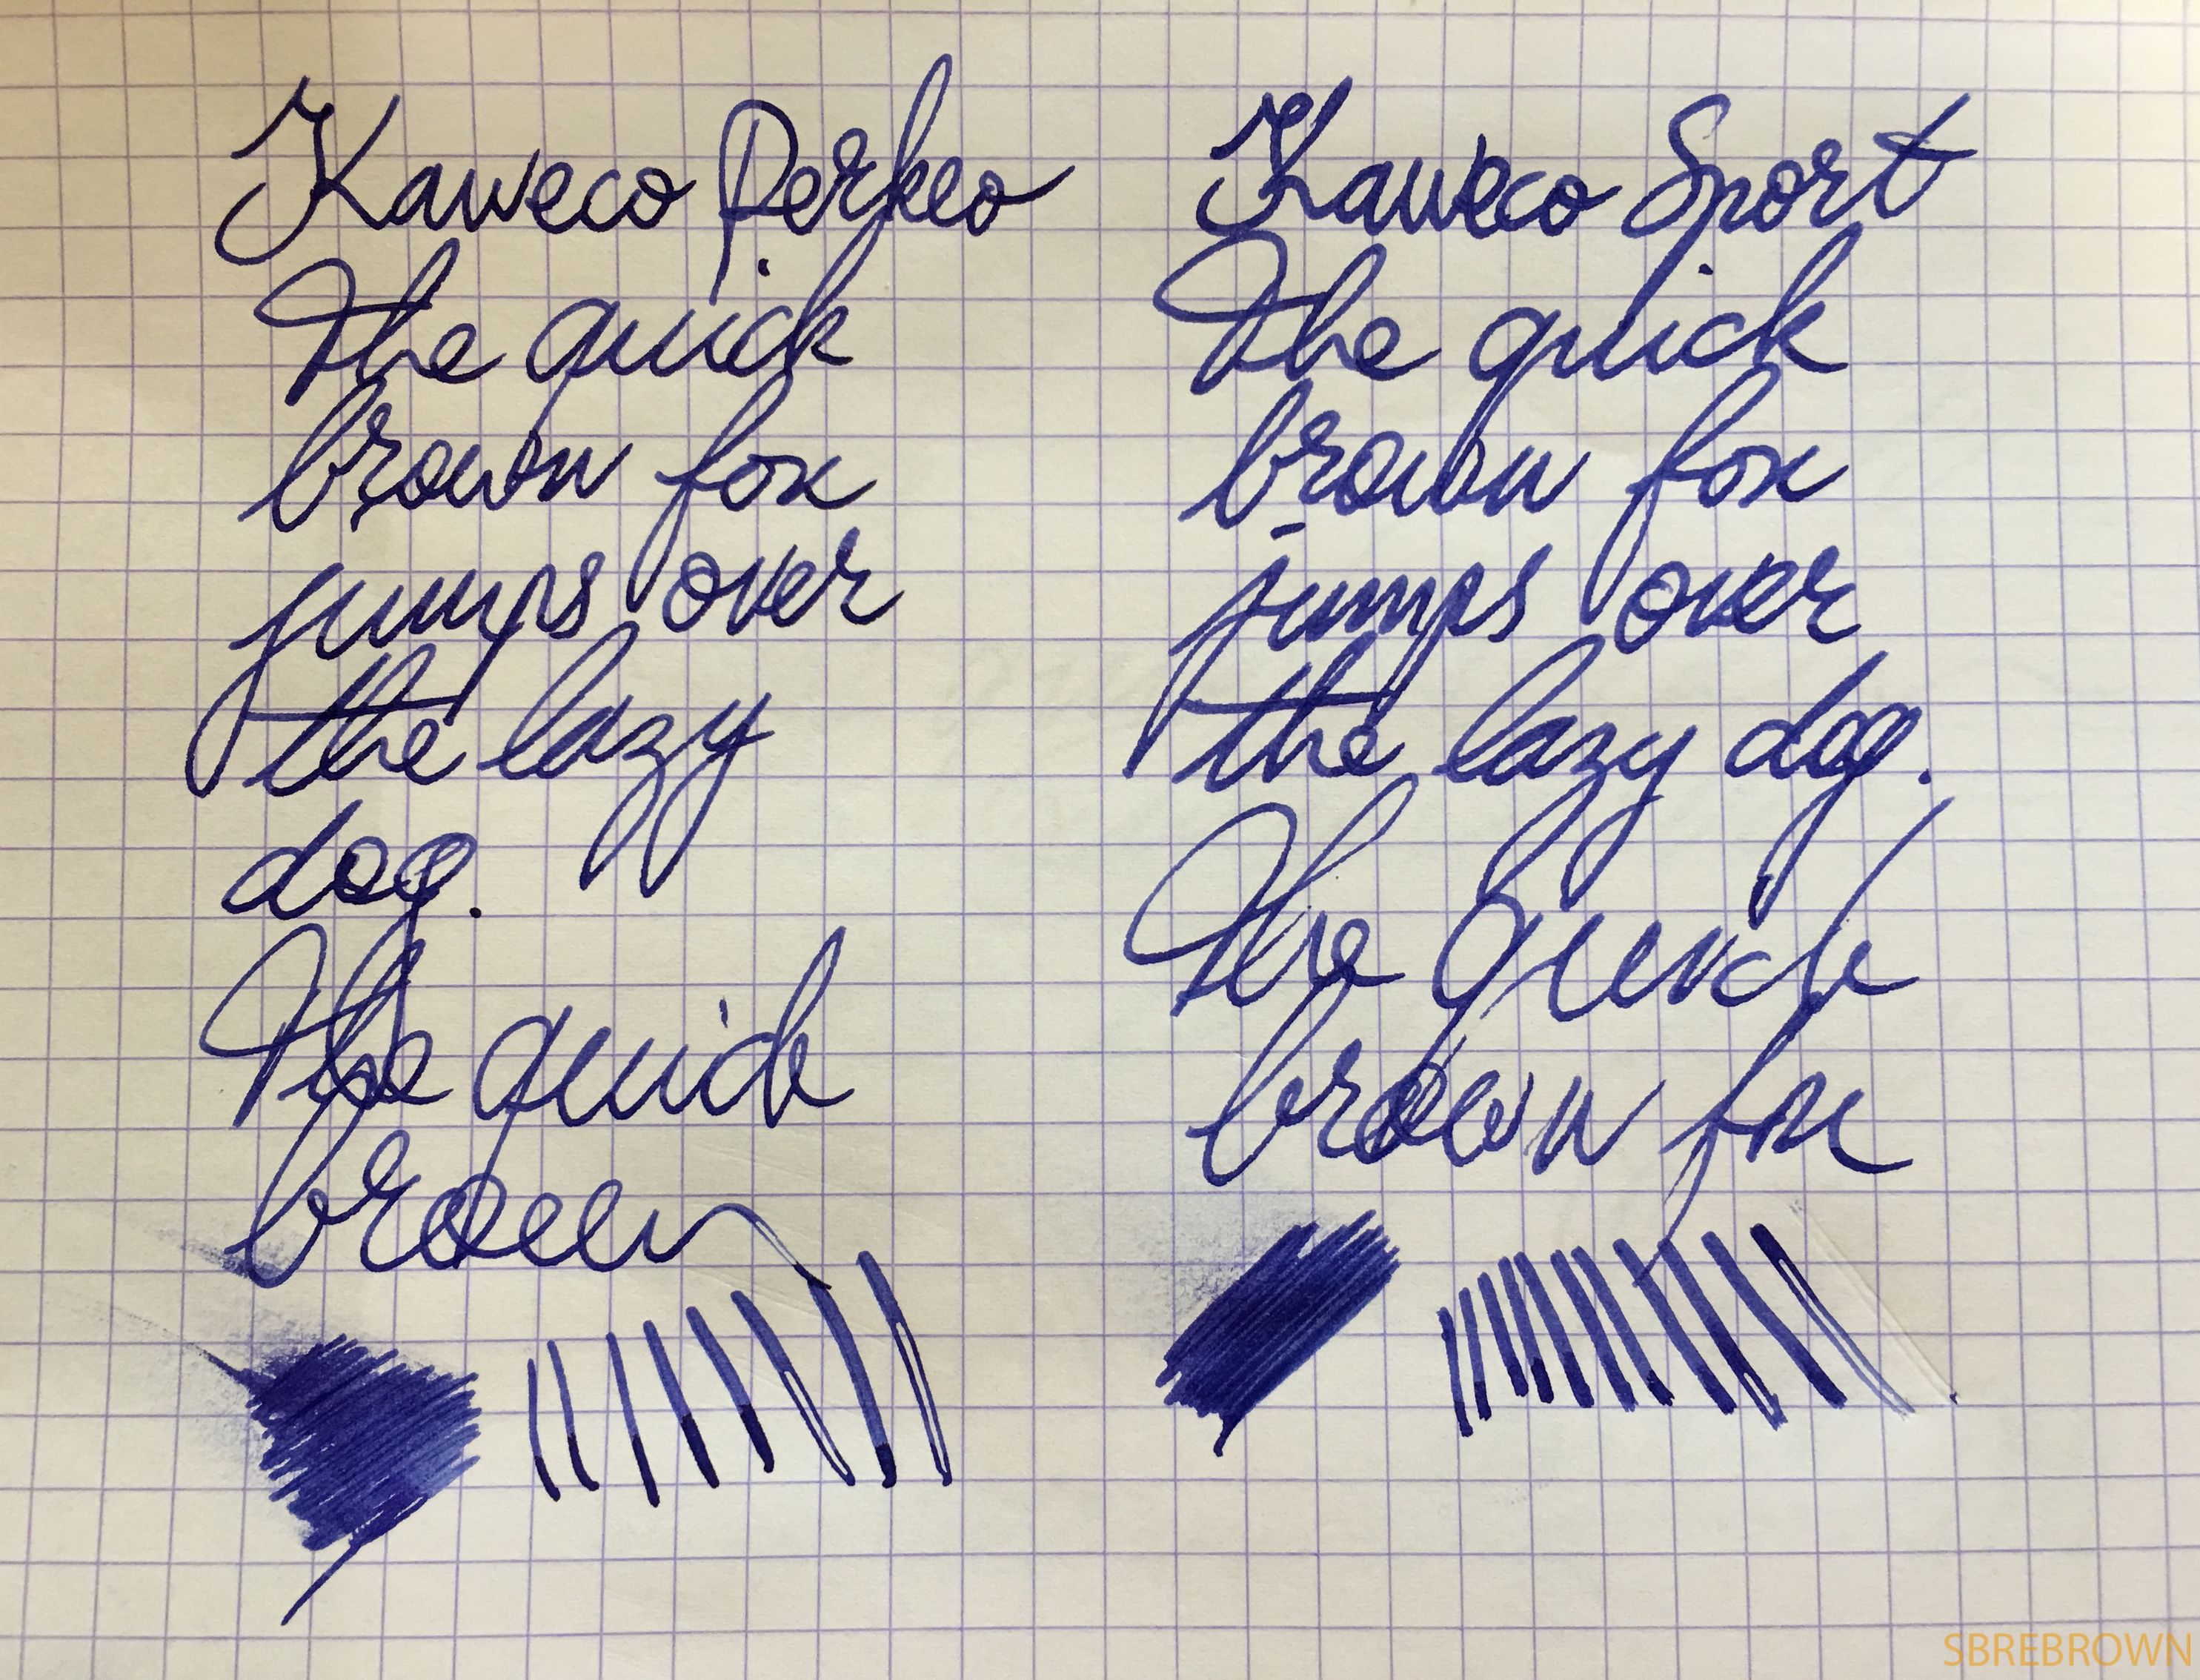 Kaweco Perkeo
The quick
brown fox
jumps over
the lazy
dog.
The quick
brown
Kaweco Sport
The quick
brown fox
jumps over
the lazy dog.
The quick
brown fox
SBREBROWN